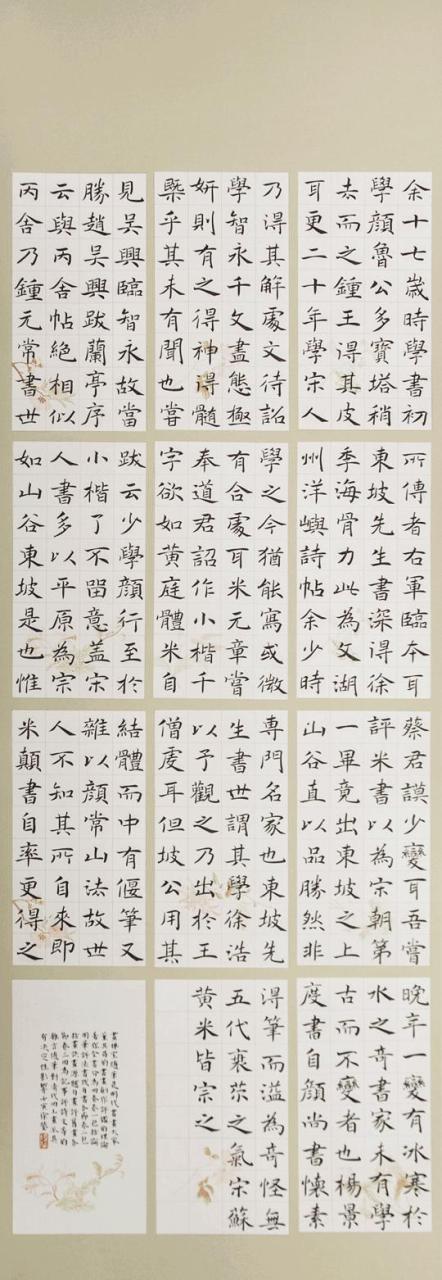 余十七歲時學書初
學顏魯公多寶塔稍
去而之鍾王得其皮
耳更二十年學宋人
乃得其解處文待詔
學智永千文盡態極
妍則有之得神得髓
槩乎其未有聞也嘗
見吳興臨智永故當
勝趙吳興跋蘭亭序
云與丙舍帖絕相似
丙舍乃鍾元常書世
所傳者右軍臨本耳
東坡先生書深得徐
季海骨力此為文湖
州洋嶼詩帖余少時
學之今猶能寫或微
有合處耳米元章嘗
奉道君詔作小楷千
字欲如黃庭體米自
跋云少學顏行至於
小楷了不留意蓋宋
人書多以平原為宗
如山谷東坡是也惟
蔡君謨少變耳吾嘗
評米書以為宋朝第
一畢竟出東坡之上
山谷直以品勝然非
專門名家也東坡先
生書世謂其學徐浩
以予觀之乃出於王
僧虔耳但坡公用其
結體而中有偃筆又
雜以顏常山法故世
人不知其所自來即
米顛書自率更得之
晚年一變有冰寒於
水之奇書家未有學
古而不變者也楊景
度書自顏尚書懷素
得筆而溢為奇怪無
五代衰苶之氣宋蘇
黃米皆宗之
畫禪室隨筆是明代書畫大家
董其昌的書畫創作評鑑的理論
著作全書分為四卷卷一包括論